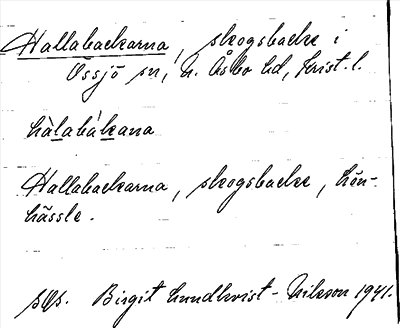 Hallabackarna, skogsbacke i
Össjö sn, N. Åsbo hd, Krist. l.
hàlabákana
Hallabackarna, skogsbacke, hön-
hässle.
Birgit Lundkvist-Nilsson 1941.